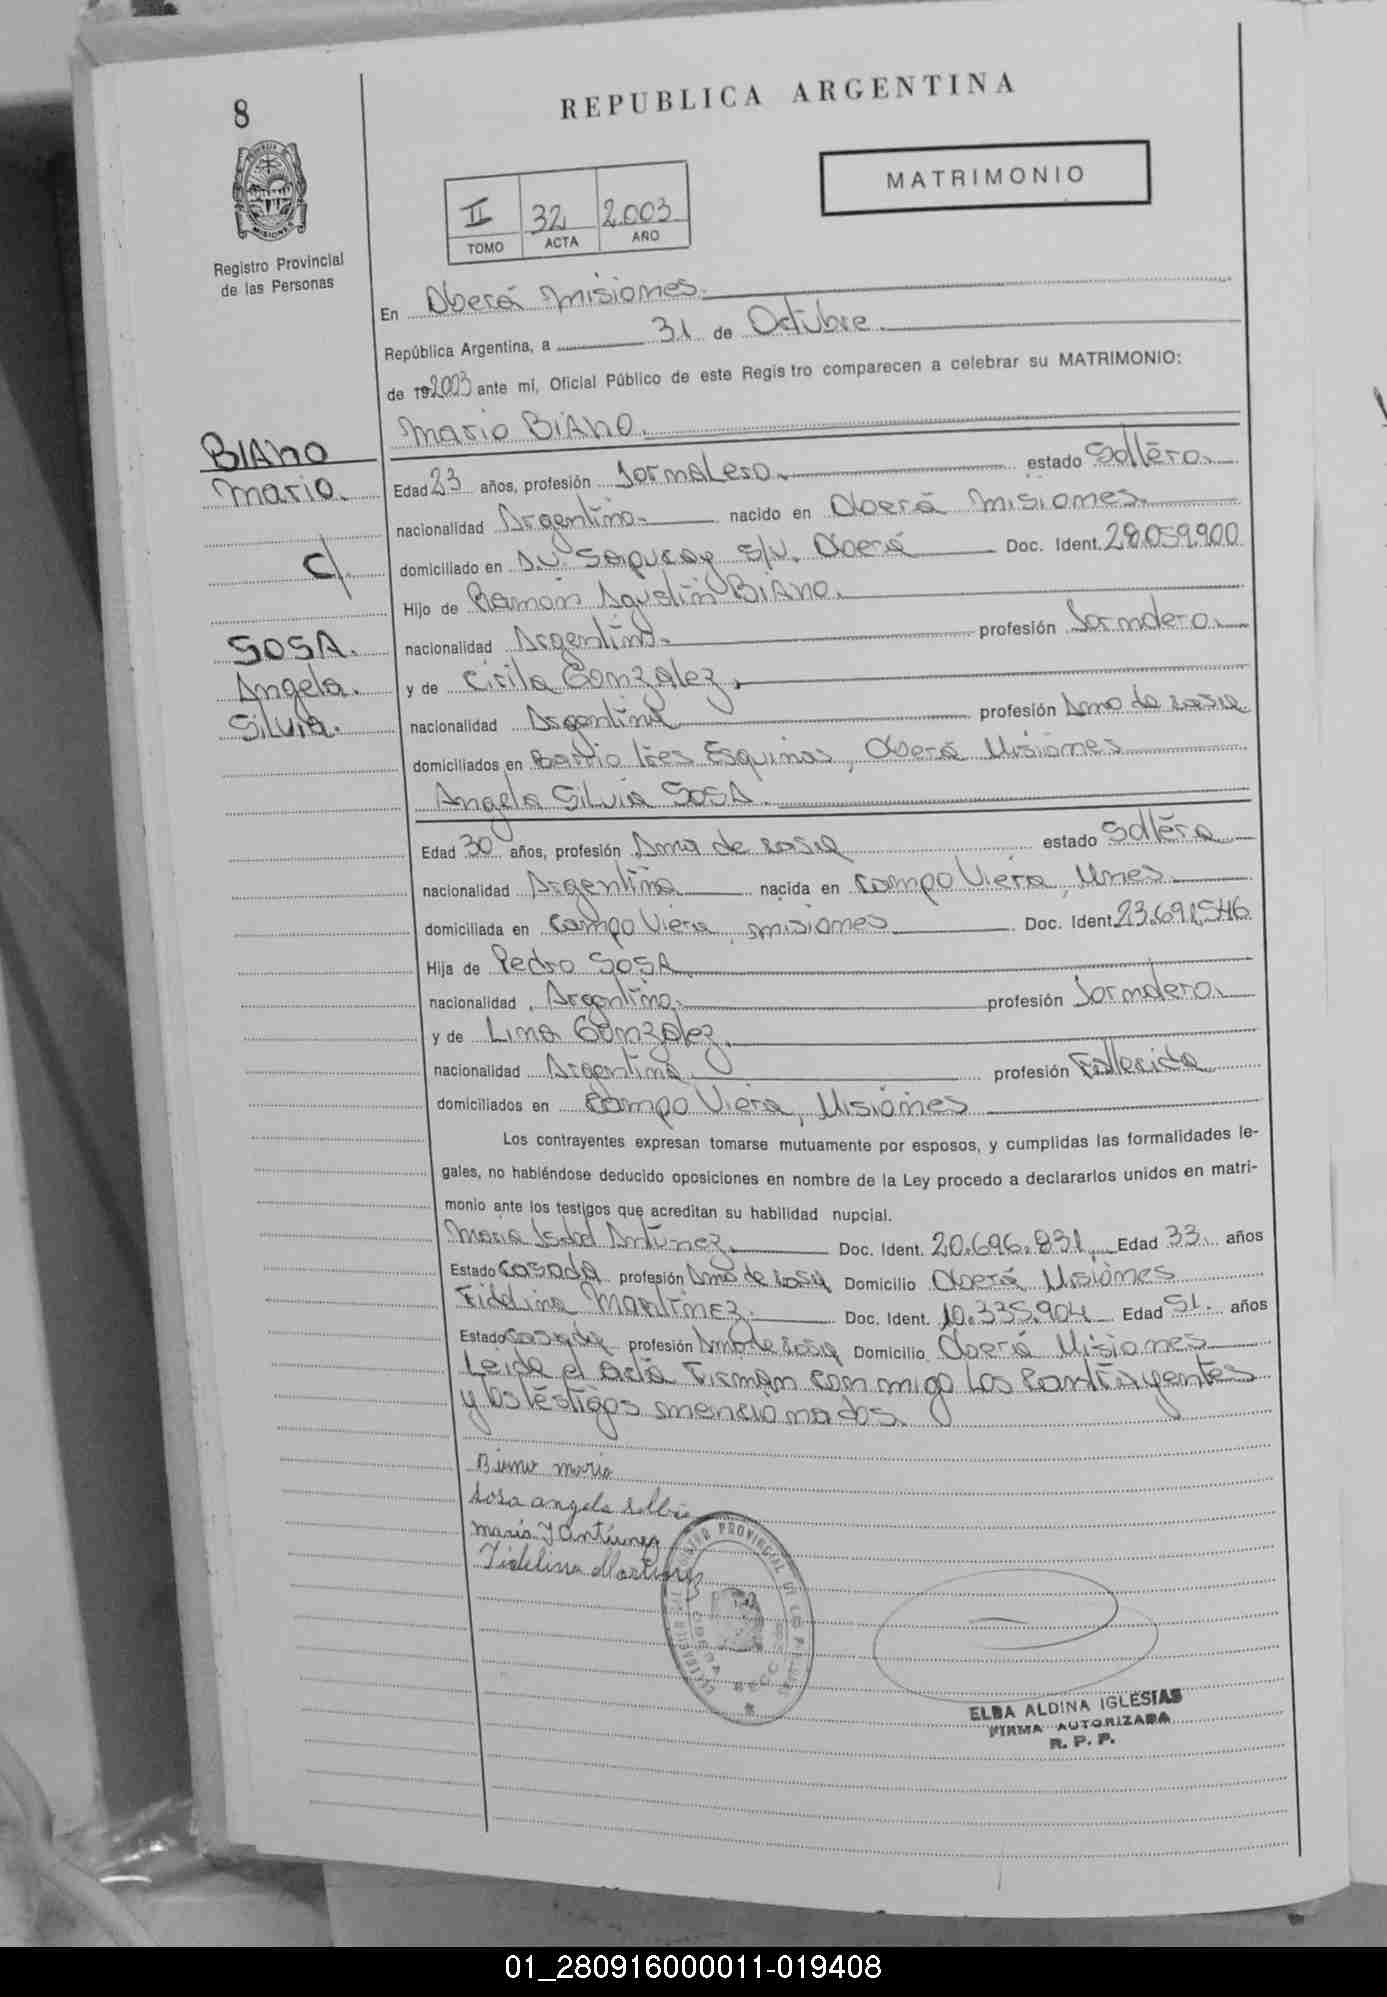 8
REPUBLICA ARGENTINA
MATRIMONIO
II 32 2.003
TOMO ACTA AÑO
Registro Provincial
de las Personas
En Oberá Misiones.
República Argentina, a 31 de Octubre.
de 192003 ante mí, Oficial Público de este Registro comparecen a celebrar su MATRIMONIO:
Mario BIANO.
BIANO
Mario.
C/.
SOSA.
Angela.
Silvia.
Edad 23 años, profesión Jornalero. estado Soltero.
nacionalidad Argentino. nacido en Oberá Misiones.
domiciliado en Av. Sapucay S/N. Oberá Doc. Ident. 28.059.900
Hijo de Ramón Agustín BIANO.
nacionalidad Argentino. profesión Jornalero.
y de Cirila Gonzalez.
nacionalidad Argentina profesión Ama de casa
domiciliados en Barrio Tres Esquinas, Oberá Misiones
Angela Silvia SOSA.
Edad 30 años, profesión Ama de casa estado Soltera
nacionalidad Argentina nacida en Campo Viera, Mnes.
domiciliada en Campo Viera, Misiones Doc. Ident. 23.691.546
Hija de Pedro SOSA
nacionalidad Argentino. profesión Jornalero.
y de Lina Gonzalez.
nacionalidad Argentina. profesión Fallecida
domiciliados en Campo Viera, Misiones
Los contrayentes expresan tomarse mutuamente por esposos, y cumplidas las formalidades le-
gales, no habiéndose deducido oposiciones en nombre de la Ley procedo a declararlos unidos en matri-
monio ante los testigos que acreditan su habilidad nupcial.
Maria Isabel Antunez. Doc. Ident. 20.696.831. Edad 33 años
Estado Casada profesión Ama de casa Domicilio Oberá Misiones
Fidelina Martinez. Doc. Ident. 10.335.904 Edad 51. años
Estado Casada profesión Ama de casa Domicilio Oberá Misiones
Leida el acta Firman conmigo los contrayentes
y los testigos mencionados.
Biano mario
Sosa angela silvia
maria I Antunez
Fidelina Martinez
ELBA ALDINA IGLESIAS
FIRMA AUTORIZADA
R. P. P.
01_280916000011-019408